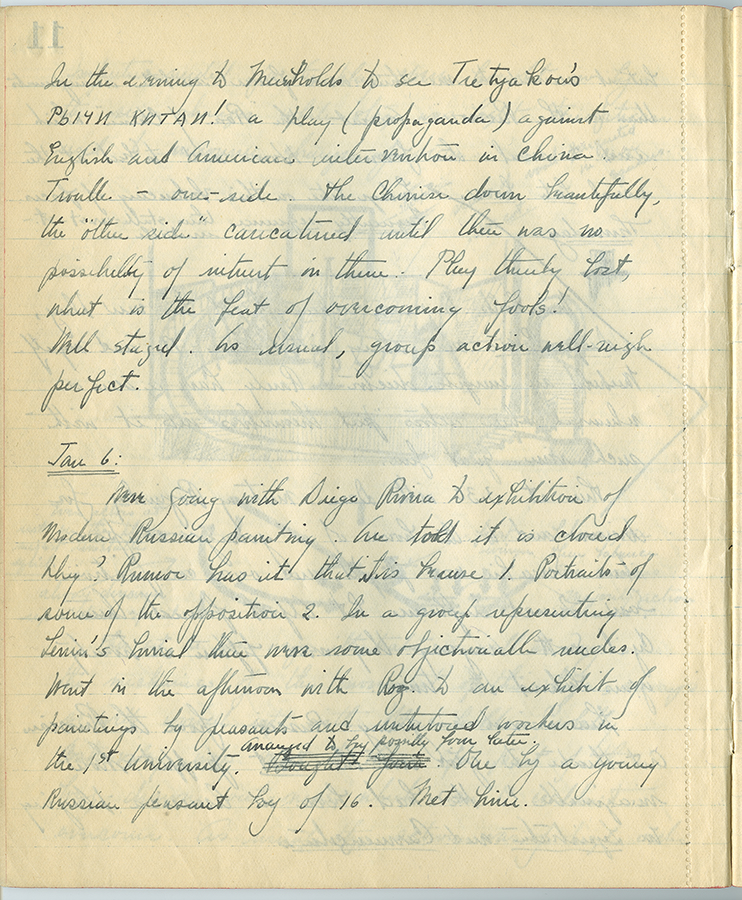 In the evening to Meierholds to see Tretyakov's
РЫЧИ КИТАЙ! a play (propaganda) against
English and American intervention in China
Trouble – one-side. The Chinese down beautifully,
the "other side" caricatured until there was no
possibility of interest in them. Play thereby lost,
what is the feat of overcoming fools!
Well staged. As usual, group action well-nigh
perfect.
Jan 6:
Were going with Diego Rivera to exhibition of
Modern Russian painting. Are told it is closed
Why? Rumor has it that it is because 1. Portraits of
some of the opposition 2. In a group representing
Lenin's burial there were some objectionable nudes.
Went in the afternoon with Roz. to an exhibit of
paintings by peasants and untutored workers in
arranged to buy possibly four later.
the 1st University. Bought four One by a young
Russian peasant boy of 16. Met him.